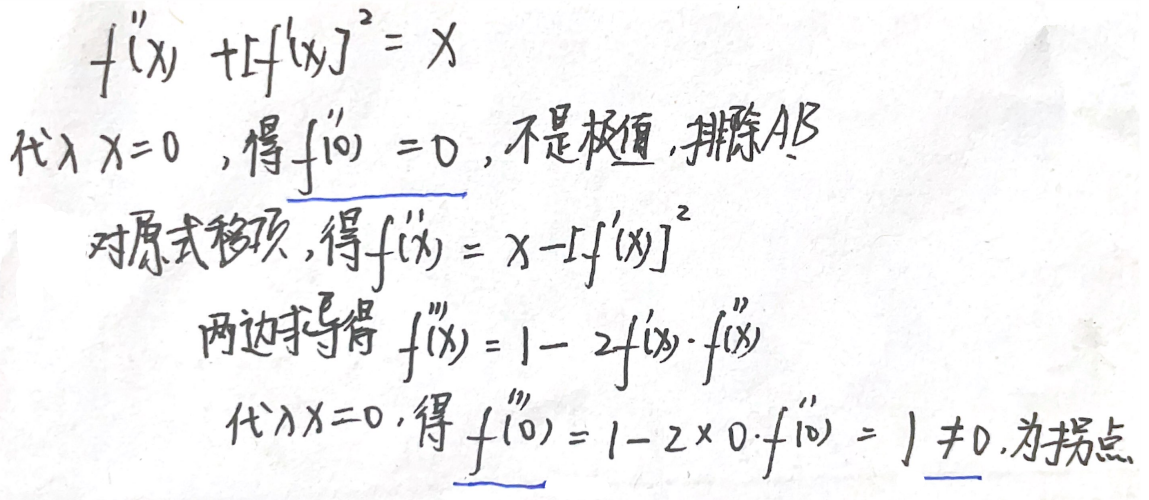 f''(x) + [f'(x)]² = x
代入 x=0 ,得 f''(0) = 0 , 不是极值 , 排除AB
对原式移项 , 得 f''(x) = x - [f'(x)]²
两边求导得 f'''(x) = 1 - 2f'(x)·f''(x)
代入x=0 , 得 f'''(0) = 1 - 2×0·f''(0) = 1 ≠ 0 , 为拐点